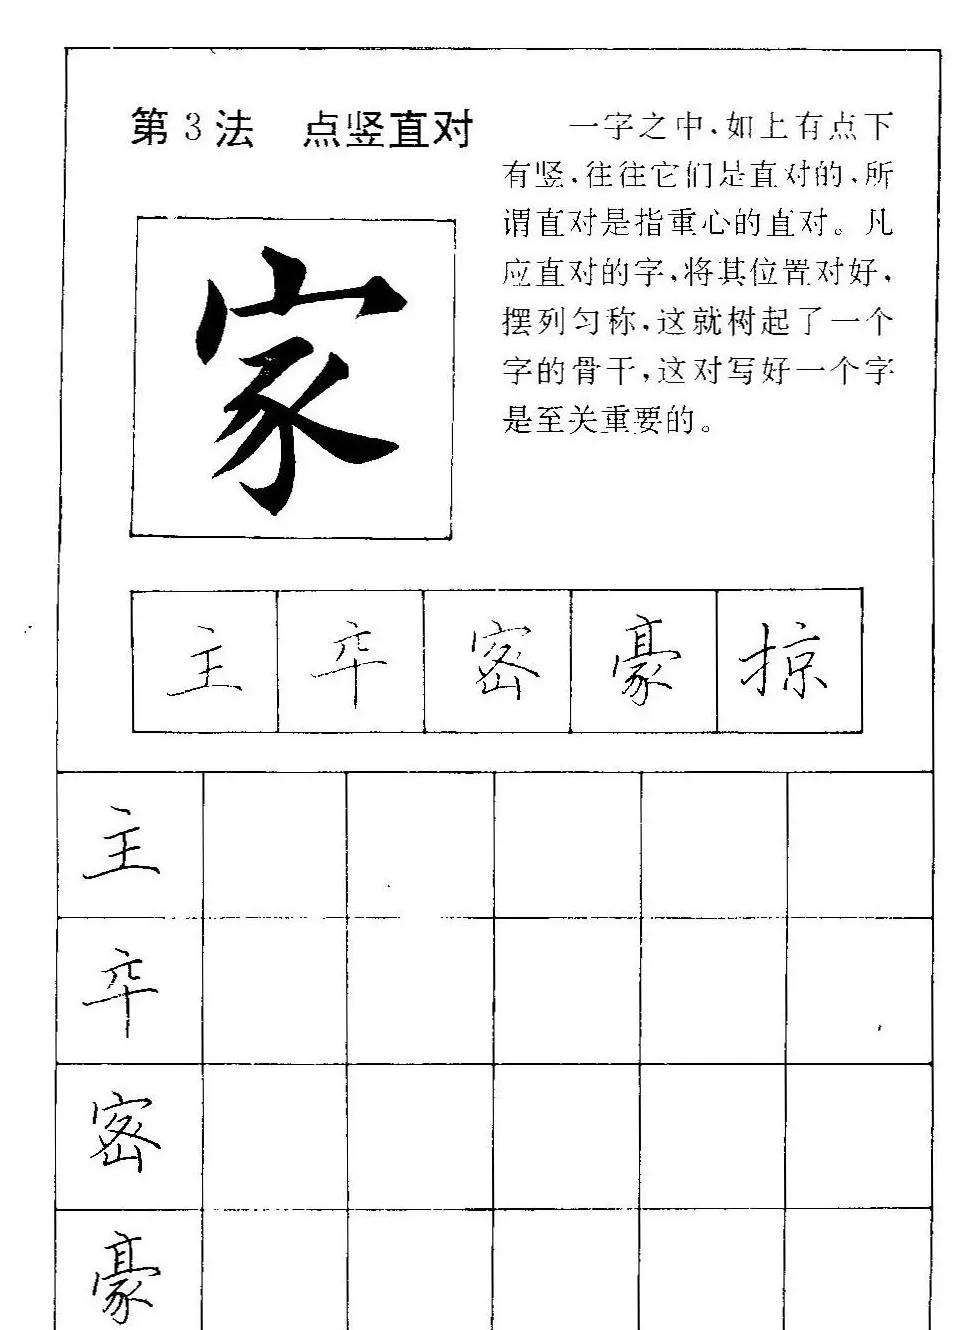 第3法 点竖直对
一字之中,如上有点下
有竖,往往它们是直对的,所
谓直对是指重心的直对。凡
应直对的字,将其位置对好,
摆列匀称,这就树起了一个
字的骨干,这对写好一个字
是至关重要的。
家
主 卒 密 豪 掠
主
卒
密
豪